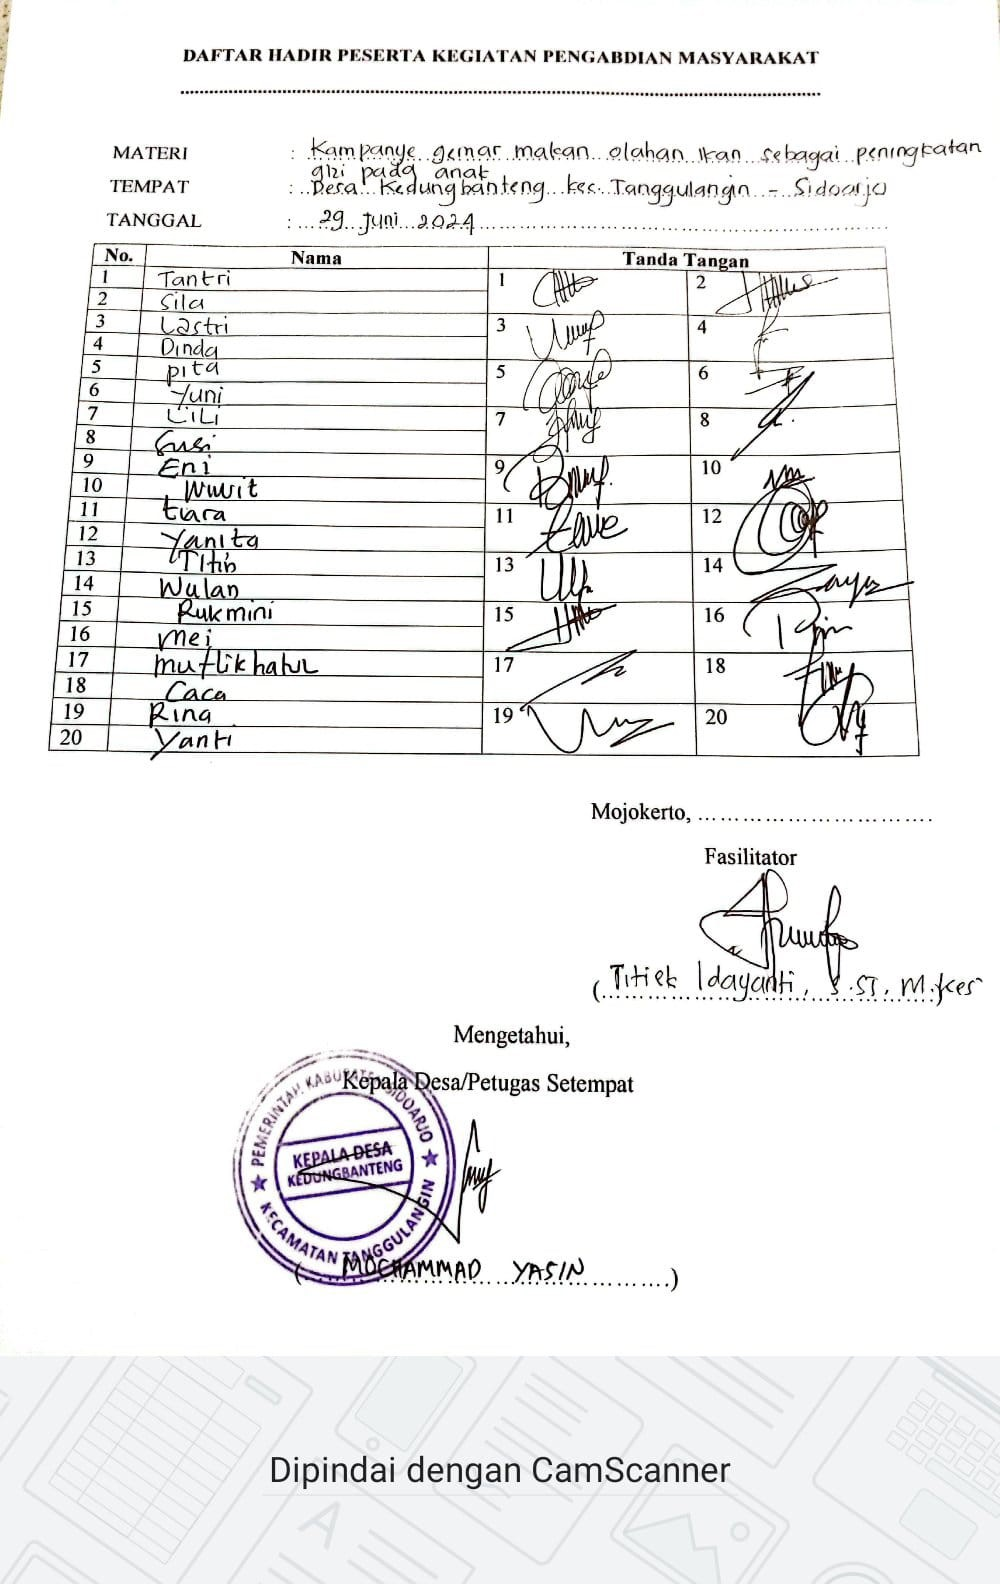 DAFTAR HADIR PESERTA KEGIATAN PENGABDIAN MASYARAKAT
MATERI : Kampanye gemar makan olahan Ikan sebagai peningkatan
gizi pada anak
TEMPAT : Desa. Kedungbanteng kec. Tanggulangin - Sidoarjo
TANGGAL : 29 Juni 2024
No. Nama Tanda Tangan
1 Tantri 1 2
2 Sila
3 Lastri 3 4
4 Dinda
5 pita 5 6
6 Yuni
7 LiLi 7 8
8 Susi
9 Eni 9 10
10 Wiwit
11 tiara 11 12
12 Yanita
13 Titin 13 14
14 Wulan
15 Rukmini 15 16
16 mei
17 muflikhatul 17 18
18 Caca
19 Rina 19 20
20 Yanti
Mojokerto, ................................
Fasilitator
(Titiek Idayanti, S.ST. M.Kes
Mengetahui,
Kepala Desa/Petugas Setempat
PEMERINTAH KABUPATEN SIDOARJO
KEPALA DESA
KEDUNGBANTENG
KECAMATAN TANGGULANGIN
(MOCHAMMAD YASIN)
Dipindai dengan CamScanner